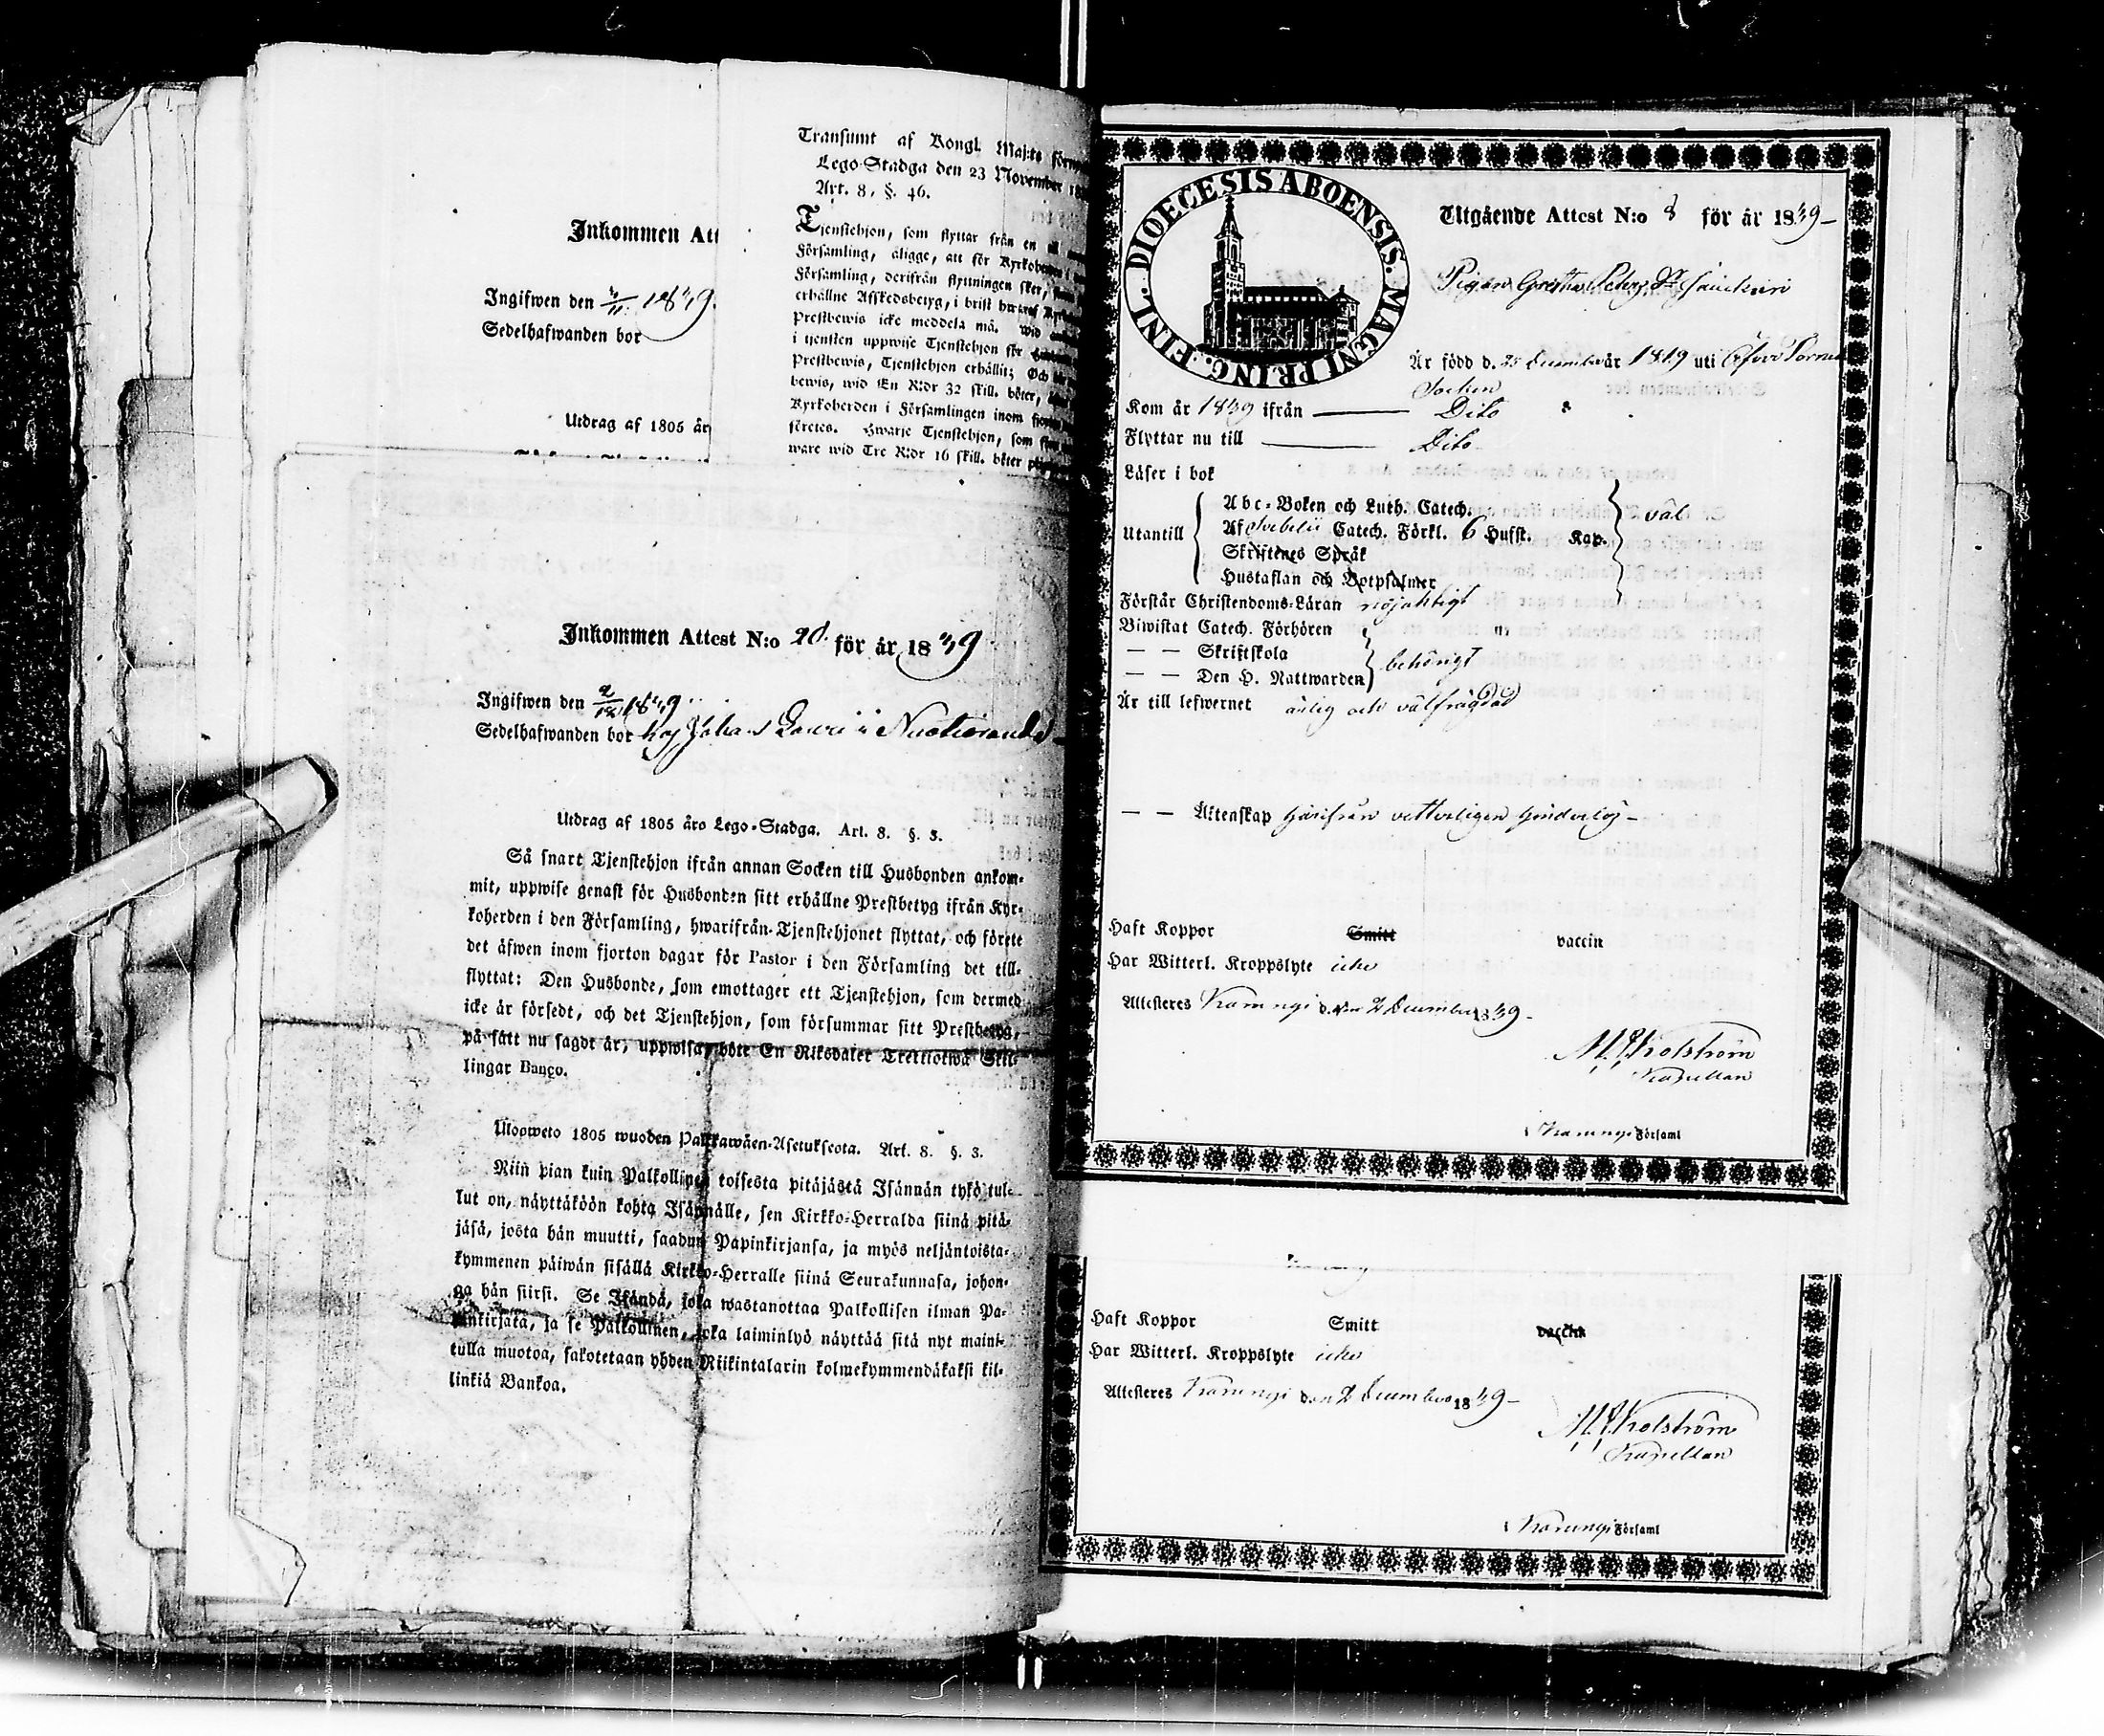 Inkommen Att
Ingifwen den 2/11 1839.
Sedelhafwanden bor
Utdrag af 1805 år
Transumt af Kongl. Maj:ts förny
Lego-Stadga den 23 November 18
Art. 8, §. 46.
Tjenstehjon, som flyttar från en
Församling, åligge, att för Kyrkoherden
Församling, derifrån flyttningen sker,
erhållne Afskedsbetyg, i brist hwaraf
Prestbewis icke meddela må. Wid
i tjensten uppwise Tjenstehjon för
Prestbewis, Tjenstehjon erhållit; Och
bewis, wid En R:dr 32 skill. böter,
Kyrkoherden i Församlingen inom
företes. Hwarje Tjenstehjon, som
ware wid Tre R:dr 16 skill. böter
Inkommen Attest N:o 20. för år 1839
Ingifwen den 2/12 1839.
Sedelhafwanden bor hos Johan
Utdrag af 1805 års Lego-Stadga. Art. 8. §. 3.
Så snart Tjenstehjon ifrån annan Socken till Husbonden ankom-
mit, uppwise genast för Husbonden sitt erhållne Prestbetyg ifrån Kyr-
koherden i den Församling, hwarifrån Tjenstehjonet flyttat, och förete
det äfwen inom fjorton dagar för Pastor i den Församling det till-
flyttat: Den Husbonde, som emottager ett Tjenstehjon, som dermed
icke är försedt, och det Tjenstehjon, som försummar sitt Prestbetyg,
på sätt nu sagdt är, uppwisa, böte En Riksdaler Trettiotwå Skil-
lingar Banco.
Ulosweto 1805 wuoden Palkkawäen-Asetuksesta. Art. 8. §. 3.
Niin pian kuin Palkollinen toisesta pitäjästä Isännän tykö tul-
lut on, näyttäköön kohta Isännälle, sen Kirkko-Herralda siinä pitä-
jäsä, josta hän muutti, saadun Papinkirjansa, ja myös neljäntoista-
kymmenen päiwän sisällä Kirkko-Herralle siinä Seurakunnasa, johon-
ga hän siirsi. Se Isändä, joka wastanottaa Palkollisen ilman Pa-
pinkirjata, ja se Palkollinen, joka laiminlyö näyttää sitä nyt maini-
tulla muotoa, sakotetaan yhden Riikintalarin kolmekymmendäkaksi kil-
linkiä Bankoa.
DIOECESIS ABOENSIS. MAGNI PRING. FINL.
Utgående Attest N:o 8 för år 1839-
Pigan Gretha Peters Dr
Är född d. 25 December år 1819 uti Öfver Torneå
Socken
Kom år 1839 ifrån Dito
Flyttar nu till Dito
Läser i bok
Abc-Boken och Luth. Catech.
Utantill Af Svebelii Catech. Förkl. 6 Hufst. Kap. väl
Skriftenes Språk
Hustaflan och Botpsalmer
Förstår Christendoms-Läran nöjaktigt
Biwistat Catech. Förhören
— — Skriftskola behörigt
— — Den H. Nattwarden
Är till lefwernet ärlig och välfrägdad
— — Äktenskap härifrån vetterligen hinderlös-
Haft Koppor Smitt vaccin
Har Witterl. Kroppslyte icke
Attesteres Karungi den 2 December 1839-
Kapellan
Karungi Församl
Haft Koppor Smitt vaccin
Har Witterl. Kroppslyte icke
Attesteres Karungi den 2 December 1839-
Kapellan
Karungi Församl